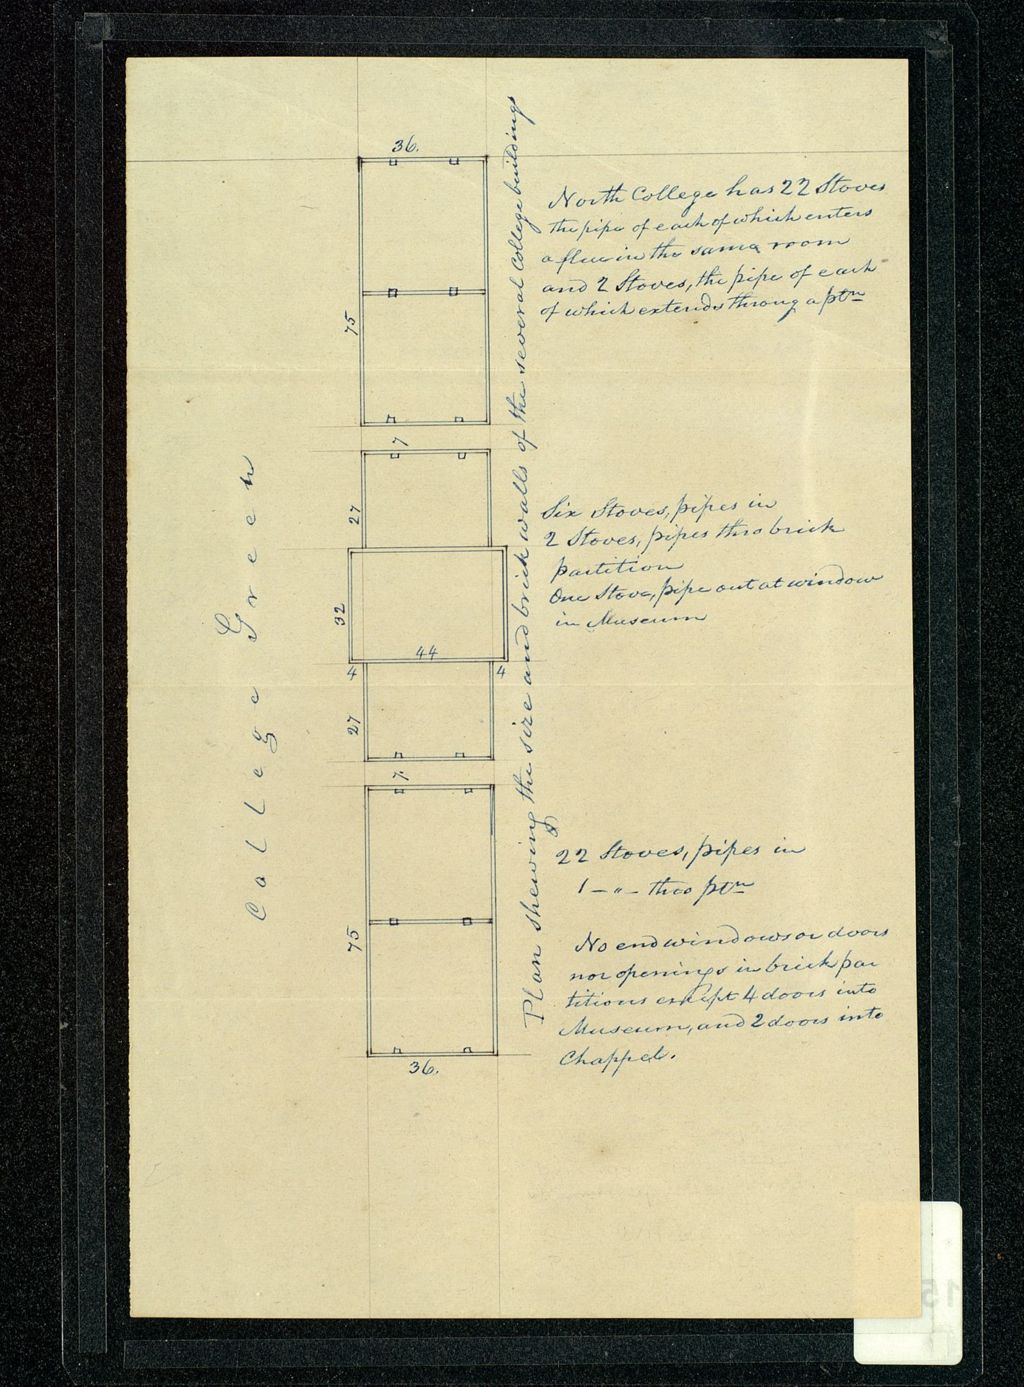 36.
North College has 22 Stoves
the pipe of each of which enters
a flue in the same room
and 2 Stoves, the pipe of each
of which extends throug a ptn
75
7
27
Six Stoves, pipes in
2 Stoves, pipes thro brick
partition
One Stove, pipe out at window
in Museum
32
44
4
4
27
7.
22 Stoves, pipes in
1 – " – thro ptn
75
No end windows or doors
nor openings in brick par
titions except 4 doors into
Museum, and 2 doors into
Chappel.
36.
College Green
Plan shewing the size and brick walls of the several College buildings
15